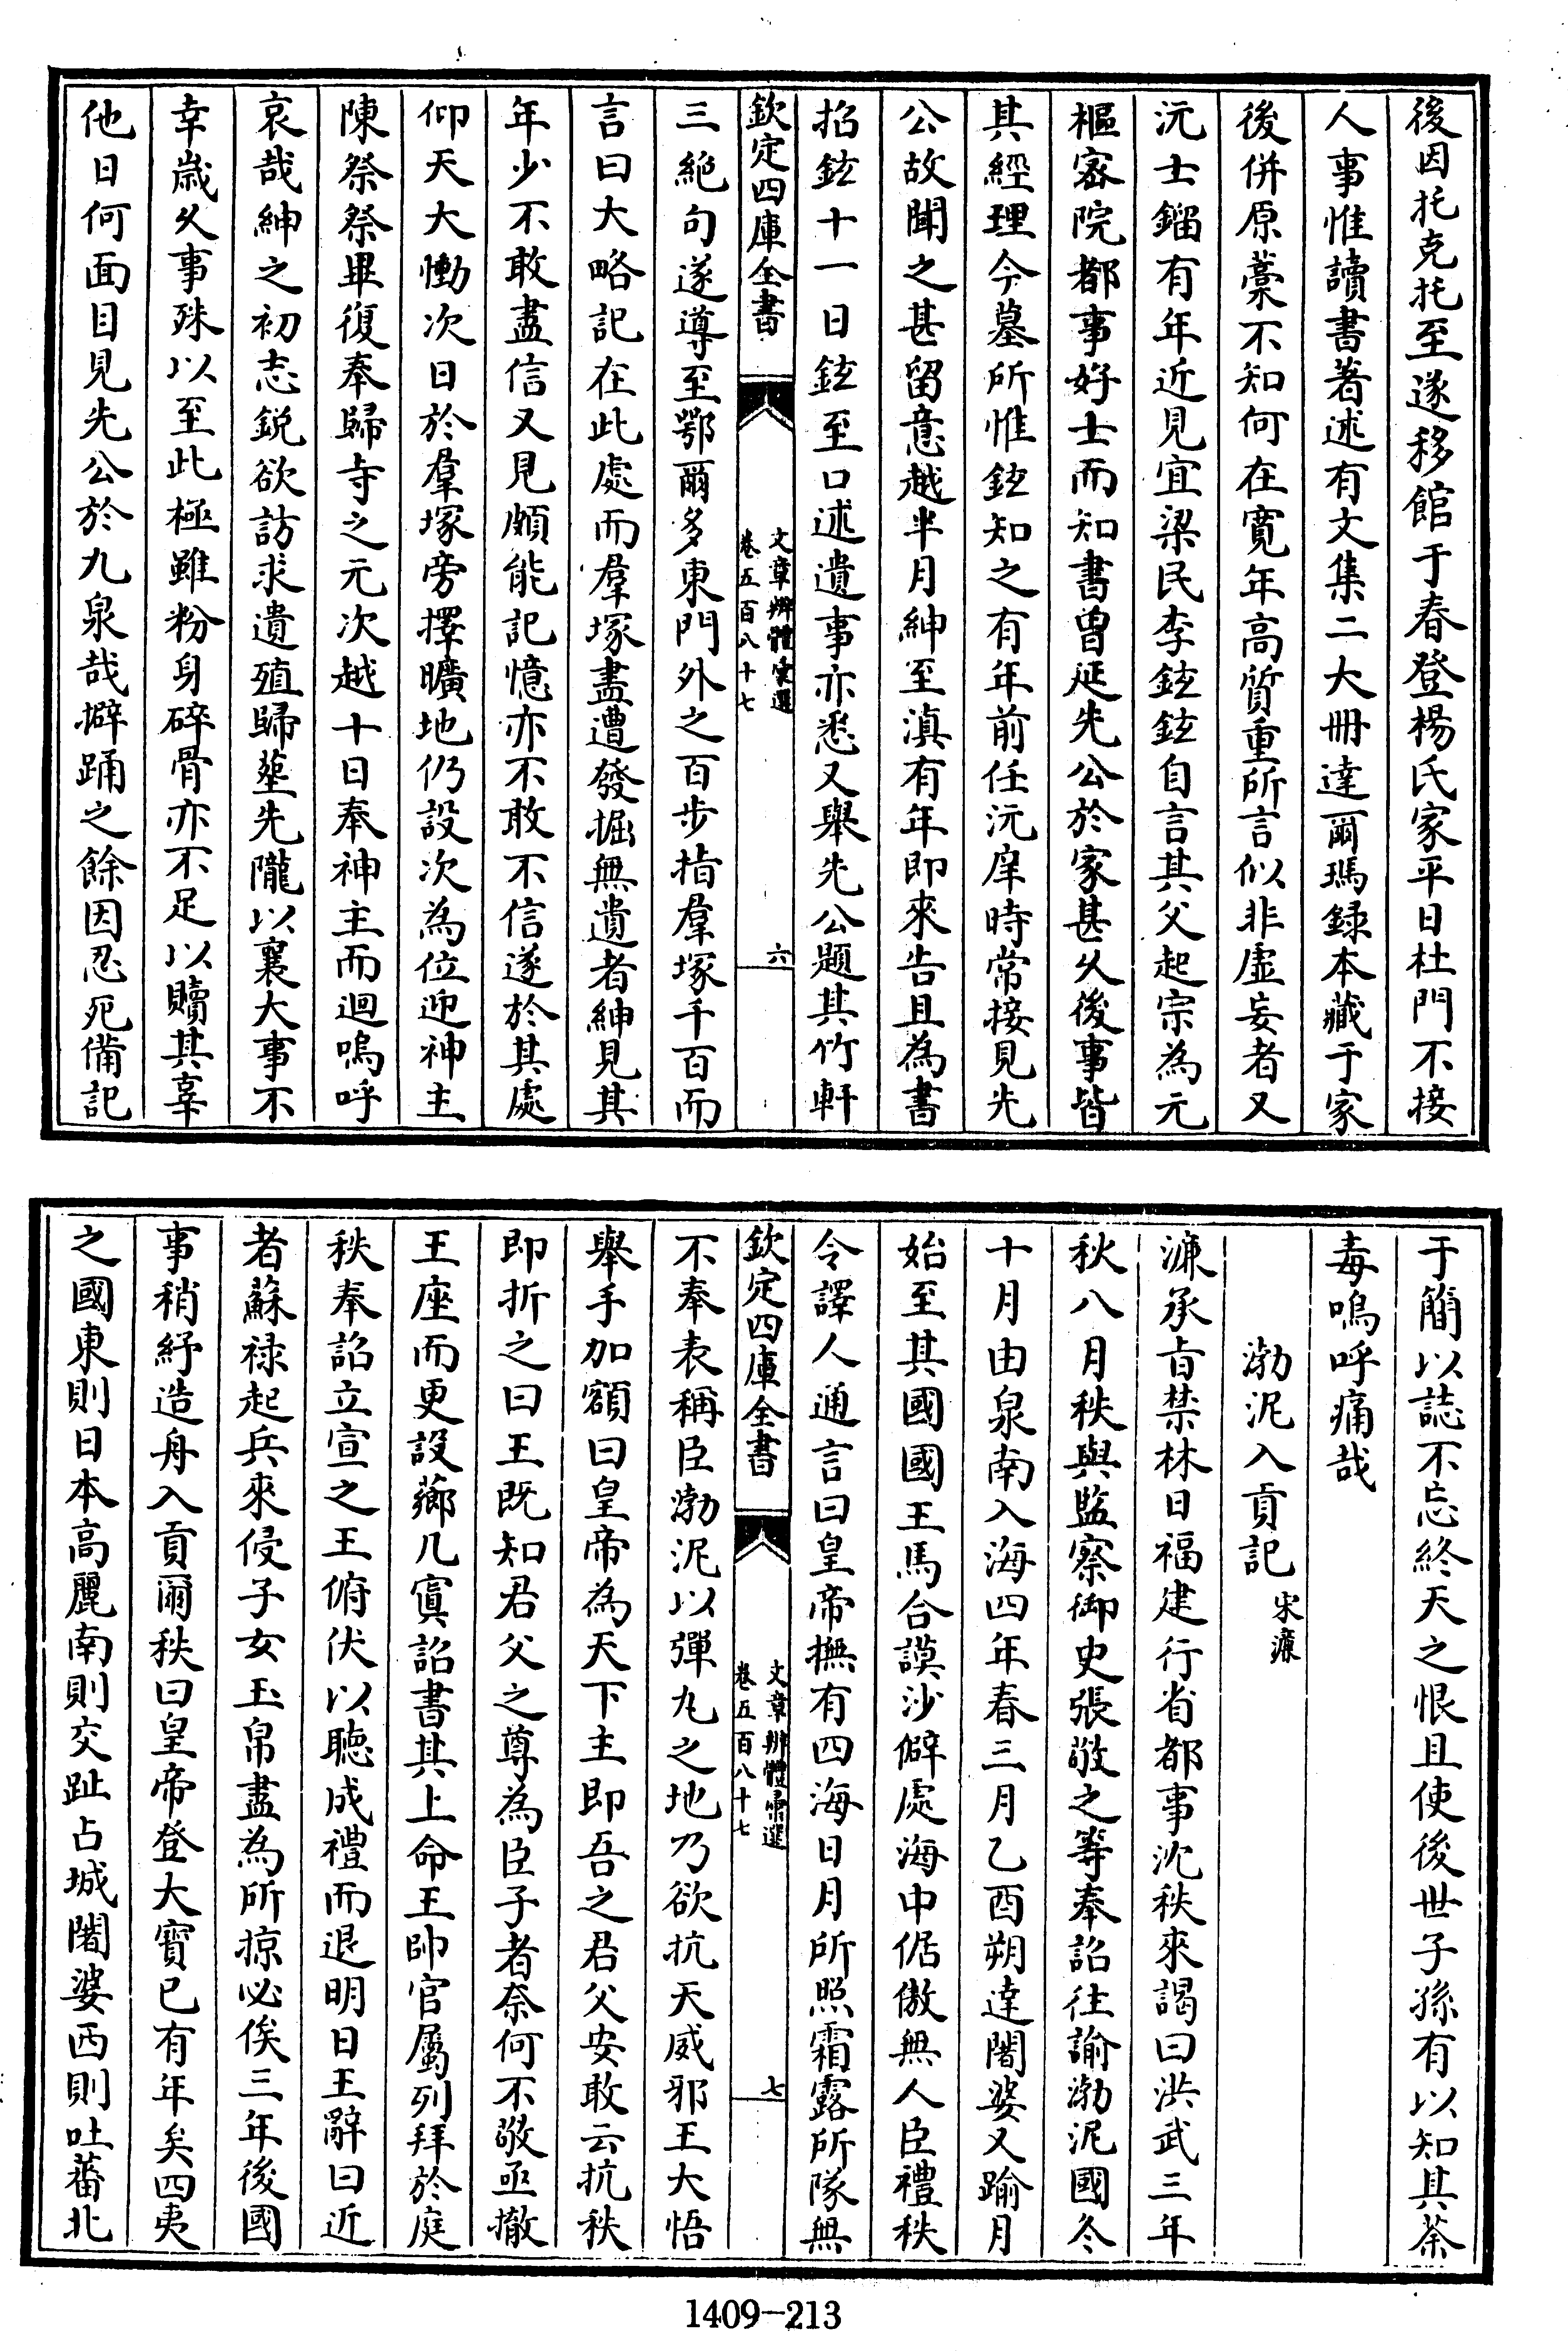 後因托克托至遂移館于春登楊氏家平日杜門不接
人事惟讀書著述有文集二大冊達爾瑪録本藏于家
後併原藁不知何在寛年高質重所言似非虛妄者又
沅士鎦有年近見宜梁民李鉉鉉自言其父起宗為元
樞密院都事好士而知書曽延先公於家甚乆後事皆
其經理今墓所惟鉉知之有年前任沅庠時常接見先
公故聞之甚留意越半月紳至滇有年即來告且為書
招鉉十一日鉉至口述遺事亦悉又舉先公題其竹軒
欽定四庫全書
文章辨體彙選
卷五百八十七
六
三絶句遂導至鄂爾多東門外之百步指羣塚千百而
言曰大略記在此處而羣塚盡遭發掘無遺者紳見其
年少不敢盡信又見頗能記憶亦不敢不信遂於其處
仰天大慟次日於羣塚旁擇曠地仍設次為位迎神主
陳祭祭畢復奉歸寺之元次越十日奉神主而迴嗚呼
哀哉紳之初志鋭欲訪求遺殖歸塟先隴以襄大事不
幸歳乆事殊以至此極雖粉身碎骨亦不足以贖其辜
他日何面目見先公於九泉哉擗踊之餘因忍死備記
于簡以誌不忘終天之恨且使後世子孫有以知其荼
毒嗚呼痛哉
渤泥入貢記 宋濂
濂承旨禁林日福建行省都事沈秩來謁曰洪武三年
秋八月秩與監察御史張敬之等奉詔往諭渤泥國冬
十月由泉南入海四年春三月乙酉朔達闍婆又踰月
始至其國國王馬合謨沙僻處海中倨傲無人臣禮秩
令譯人通言曰皇帝撫有四海日月所照霜露所隊無
欽定四庫全書
文章辨體彙選
卷五百八十七
七
不奉表稱臣渤泥以彈丸之地乃欲抗天威邪王大悟
舉手加額曰皇帝為天下主即吾之君父安敢云抗秩
即折之曰王既知君父之尊為臣子者奈何不敬亟撤
王座而更設薌几寘詔書其上命王帥官屬列拜於庭
秩奉詔立宣之王俯伏以聽成禮而退明日王辭曰近
者蘇祿起兵來侵子女玉帛盡為所掠必俟三年後國
事稍紓造舟入貢爾秩曰皇帝登大寳已有年矣四夷
之國東則日本高麗南則交趾占城闍婆西則吐蕃北
1409—213